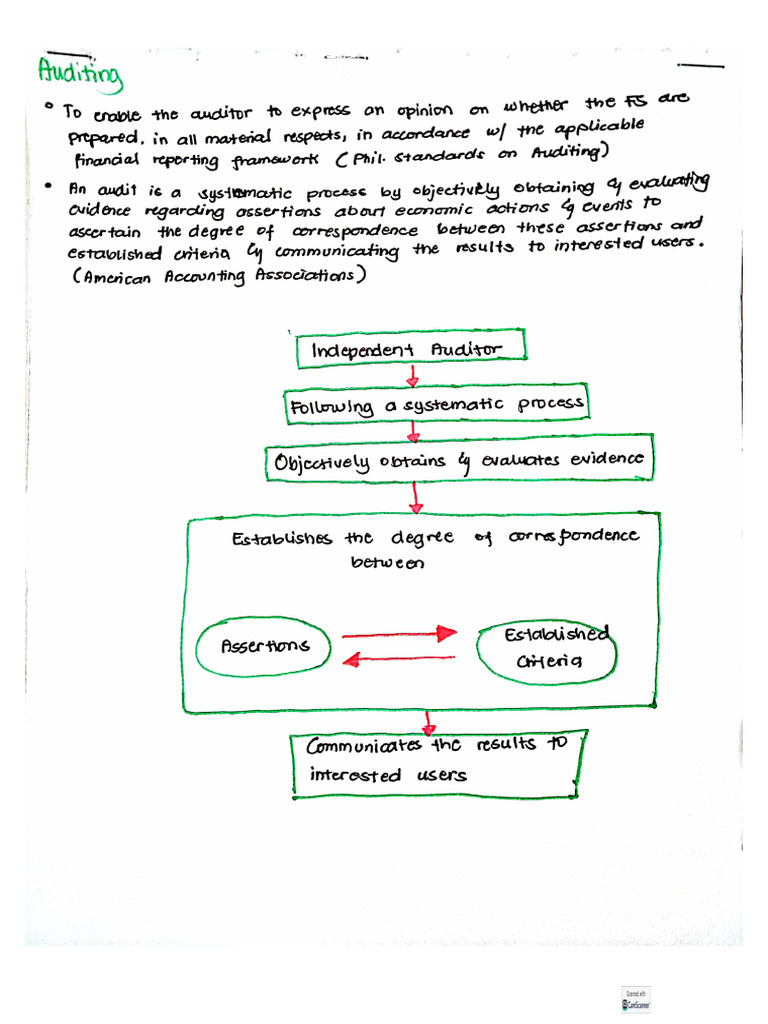 Auditing
• To enable the auditor to express an opinion on whether the FS are
prepared, in all material respects, in accordance w/ the applicable
financial reporting framework (Phil. Standards on Auditing)
• An audit is a systematic process by objectively obtaining & evaluating
evidence regarding assertions about economic actions & events to
ascertain the degree of correspondence between these assertions and
established criteria & communicating the results to interested users.
(American Accounting Associations)
Independent Auditor
Following a systematic process
Objectively obtains & evaluates evidence
Establishes the degree of correspondence
between
Assertions
Established
Criteria
Communicates the results to
interested users
Scanned with
CamScanner